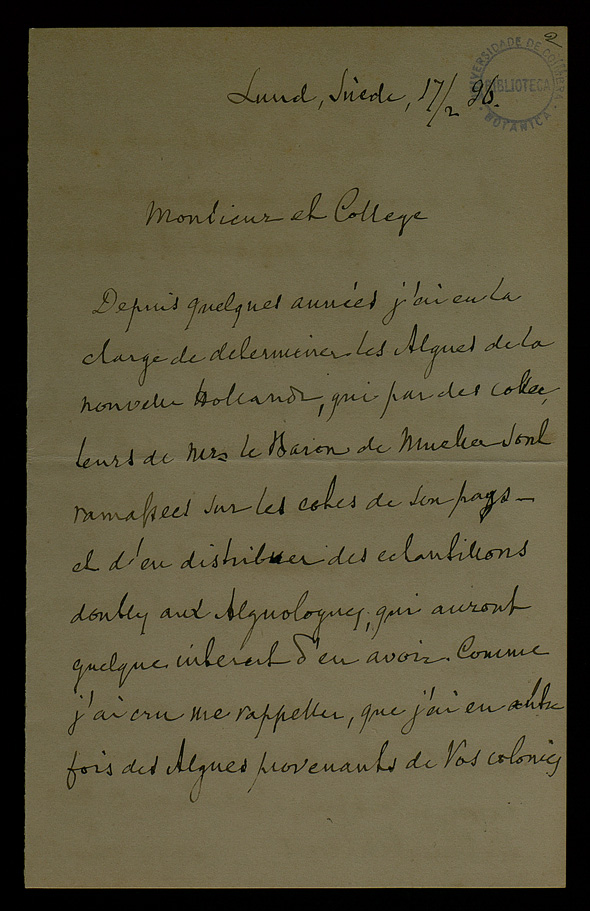 2
UNIVERSIDADE DE COIMBRA
BIBLIOTECA
BOTANICA
Lund, Suède, 17/2 96.
Monsieur et College
Depuis quelques années j'ai eu la
charge de determiner les Algues de la
nouvelle Hollande, qui par des collec
teurs de Mrs le Baron de Mueller sont
ramassees sur les cotes de son pays —
et d'en distribuer des echantillons
doubles aux Algologues, qui auront
quelque interert d'en avoir. Comme
j'ai cru me rappeller, que j'ai eu autre
fois des Algues provenants de Vos colonies